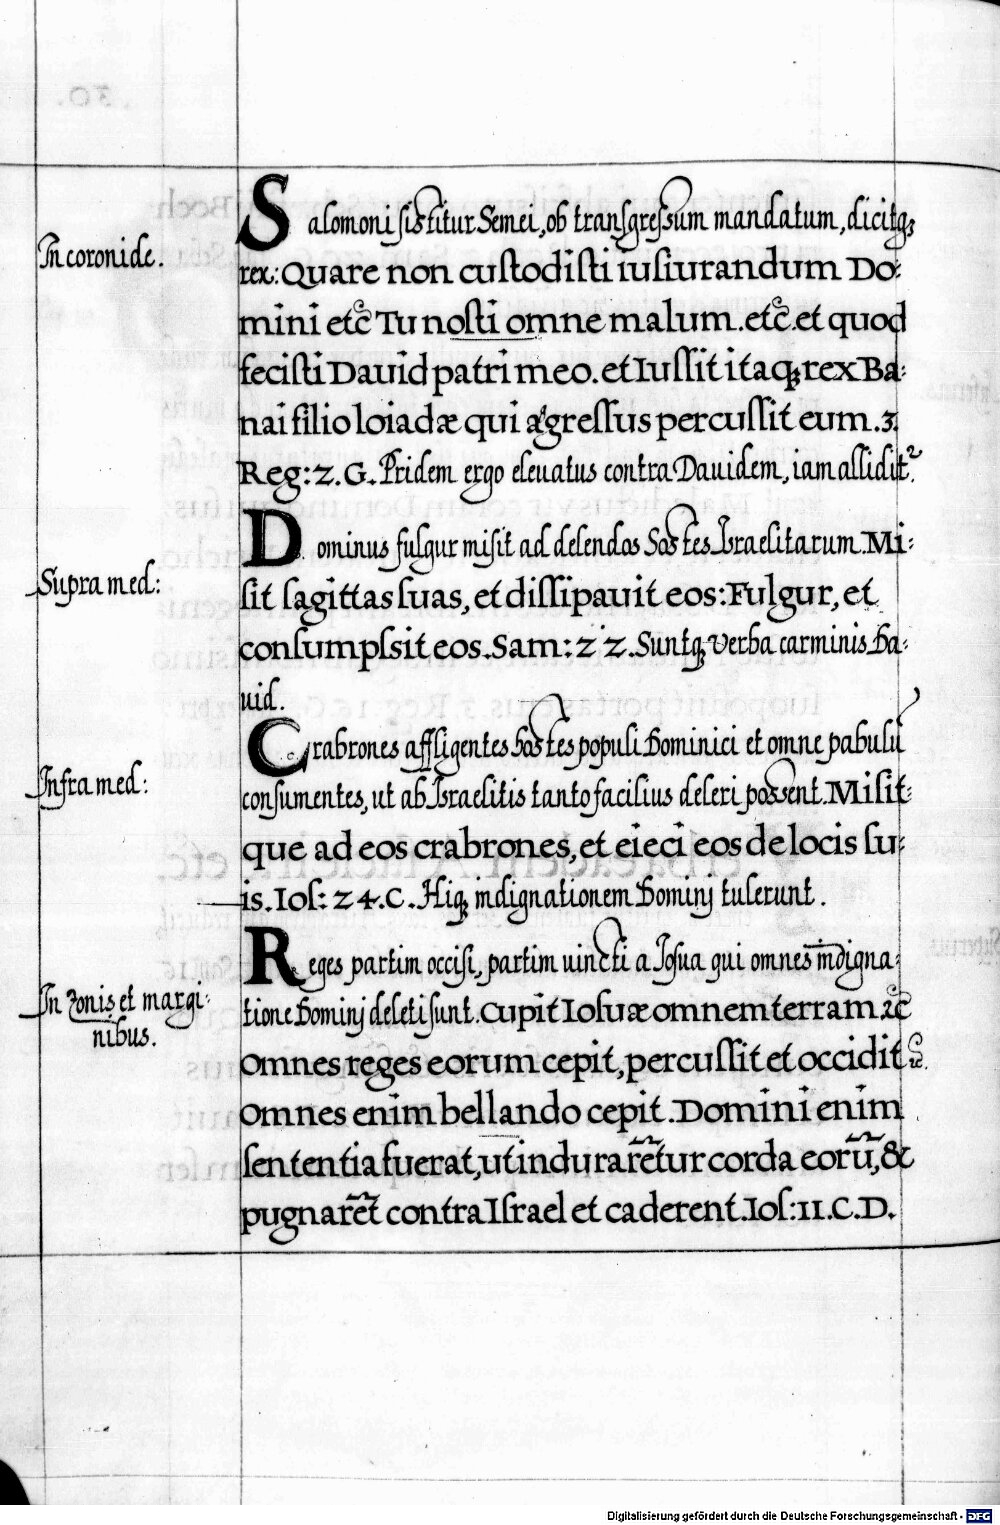 In coronide.
Salomoni sistitur Semei, ob transgressum mandatum, dicitq;
rex: Quare non custodisti iusiurandum Do-
mini etc̃ Tu nosti omne malum. etc̃. et quod
fecisti Dauid patri meo. et Iussit itaq; rex Ba-
nai filio Ioiadæ qui agressus percussit eum. 3.
Reg: 2. G. Pridem ergo eleuatus contra Dauidem, iam alliditᷣ.
Supra med:
Dominus fulgur misit ad delendos hostes Israelitarum. Mi-
sit sagittas suas, et dissipauit eos: Fulgur, et
consumpsit eos. Sam: 22. Suntq; verba carminis Da-
uid.
Infra med:
Crabrones affligentes hostes populi Dominici et omne pabulū
consumentes, ut ab Israelitis tanto facilius deleri possent. Misit-
que ad eos crabrones, et eieci eos de locis su-
is. Ios: 24. C. Hiq; indignationem Dominj tulerunt.
In zonis et margi-
nibus.
Reges partim occisi, partim uincti a Iosua qui omnes indigna-
tione Dominj deleti sunt. Cupit Iosuæ omnem terram ꝛc̃
Omnes reges eorum cepit, percussit et occidit ꝛc̃.
Omnes enim bellando cepit. Domini enim
sententia fuerat, ut indurarẽtur corda eorũ, &
pugnarẽt contra Israel et caderent. Ios: 11. C. D.
Digitalisierung gefördert durch die Deutsche Forschungsgemeinschaft - DFG